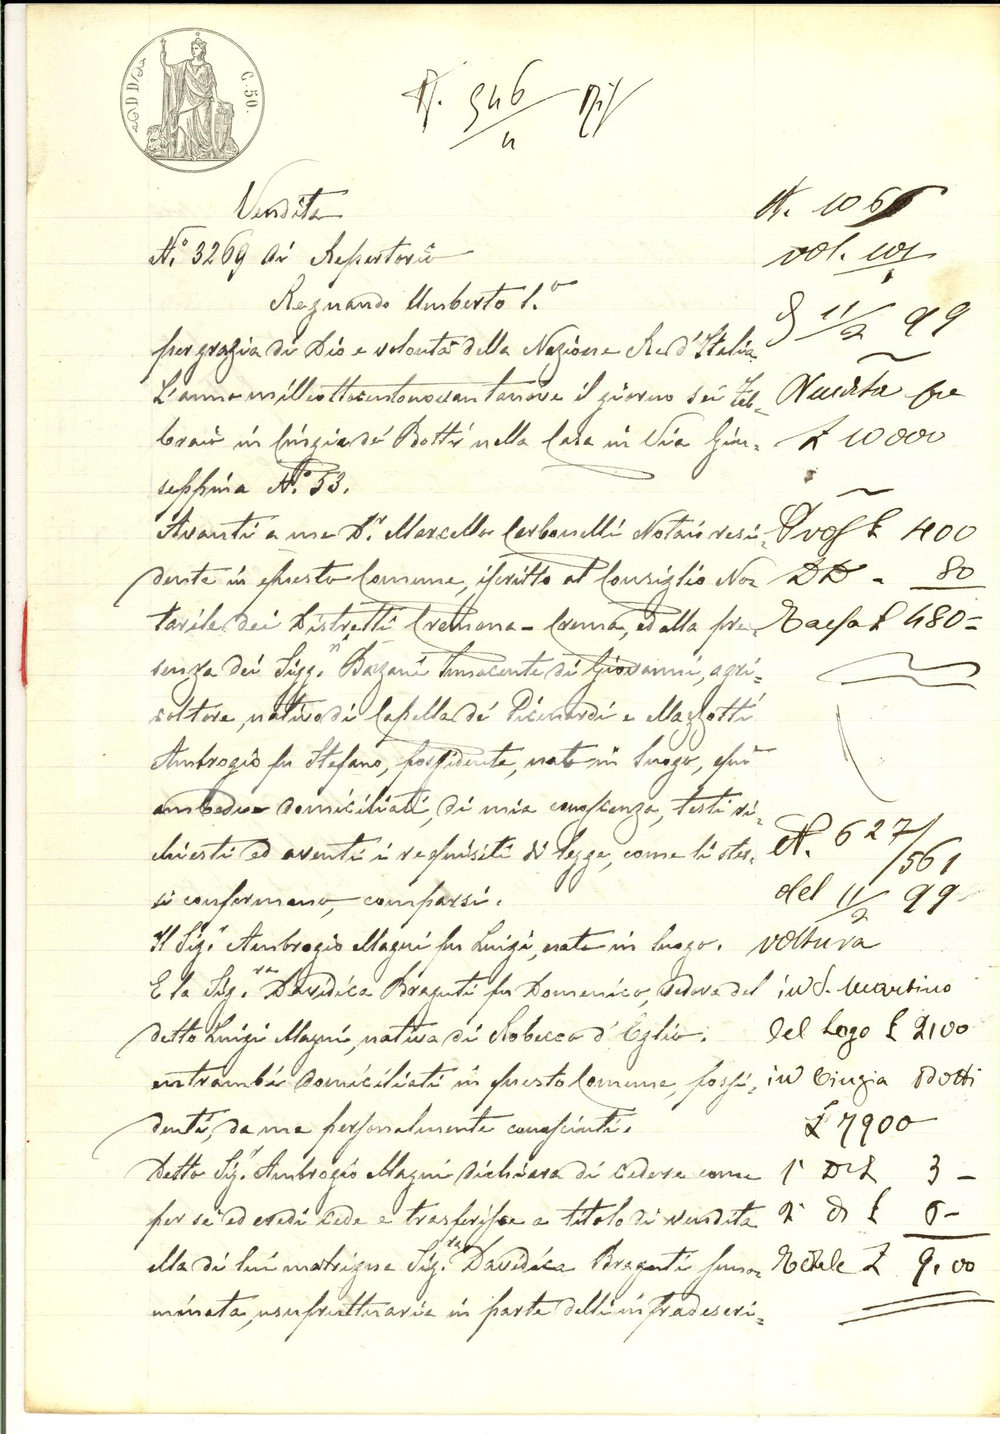 C. 50.
N. 946/4
Vendita
N.° 3269 di Repertorio
Regnando Umberto I.°
per grazia di Dio e volontà della Nazione Re d'Italia.
L'anno milleottocentonovantanove il giorno sei Feb-
braio in Cingia de' Botti nella Casa in Via Giu-
seppina N.° 53.
Avanti a me D.r Marcello Carbonelli Notaio resi-
dente in questo Comune, iscritto al Consiglio No-
tarile dei Distretti Cremona - Crema, ed alla pre-
senza dei Sigg.ri Bazani Innocente di Giovanni, agri-
coltore, nativo di Capella de' Picenardi e Mazzotti
Ambrogio fu Stefano, possidente, nato in luogo, qui
ambedue domiciliati, di mia conoscenza, testi ri-
chiesti ed aventi i requisiti di legge, come li stes-
si confermano, comparsi.
Il Sig.r Ambrogio Magni fu Luigi, nato in luogo.
E la Sig.ra Davidica Braguti fu Domenico, vedova del
detto Luigi Magni, nativa di Robecco d'Oglio.
entrambi domiciliati in questo Comune, possi-
denti, da me personalmente conosciuti.
Detto Sig.r Ambrogio Magni dichiara di cedere come
per sé ed eredi cede e trasferisce a titolo di vendita
alla di lui matrigna Sig.ra Davidica Braguti prino-
minata, usufruttuaria in parte delli infradescri-
N. 1065
vol. 101
11/2 99
Vendita per
£ 10000
Prof £ 400
DD - 80
Tassa £ 480=
N. 627/561
del 11/2 99
voltura
in S. Martino
del Lago £ 2100
in Cingia Botti
£ 7900
1° D £ 3 -
2° D £ 6 -
Totale £ 9.00